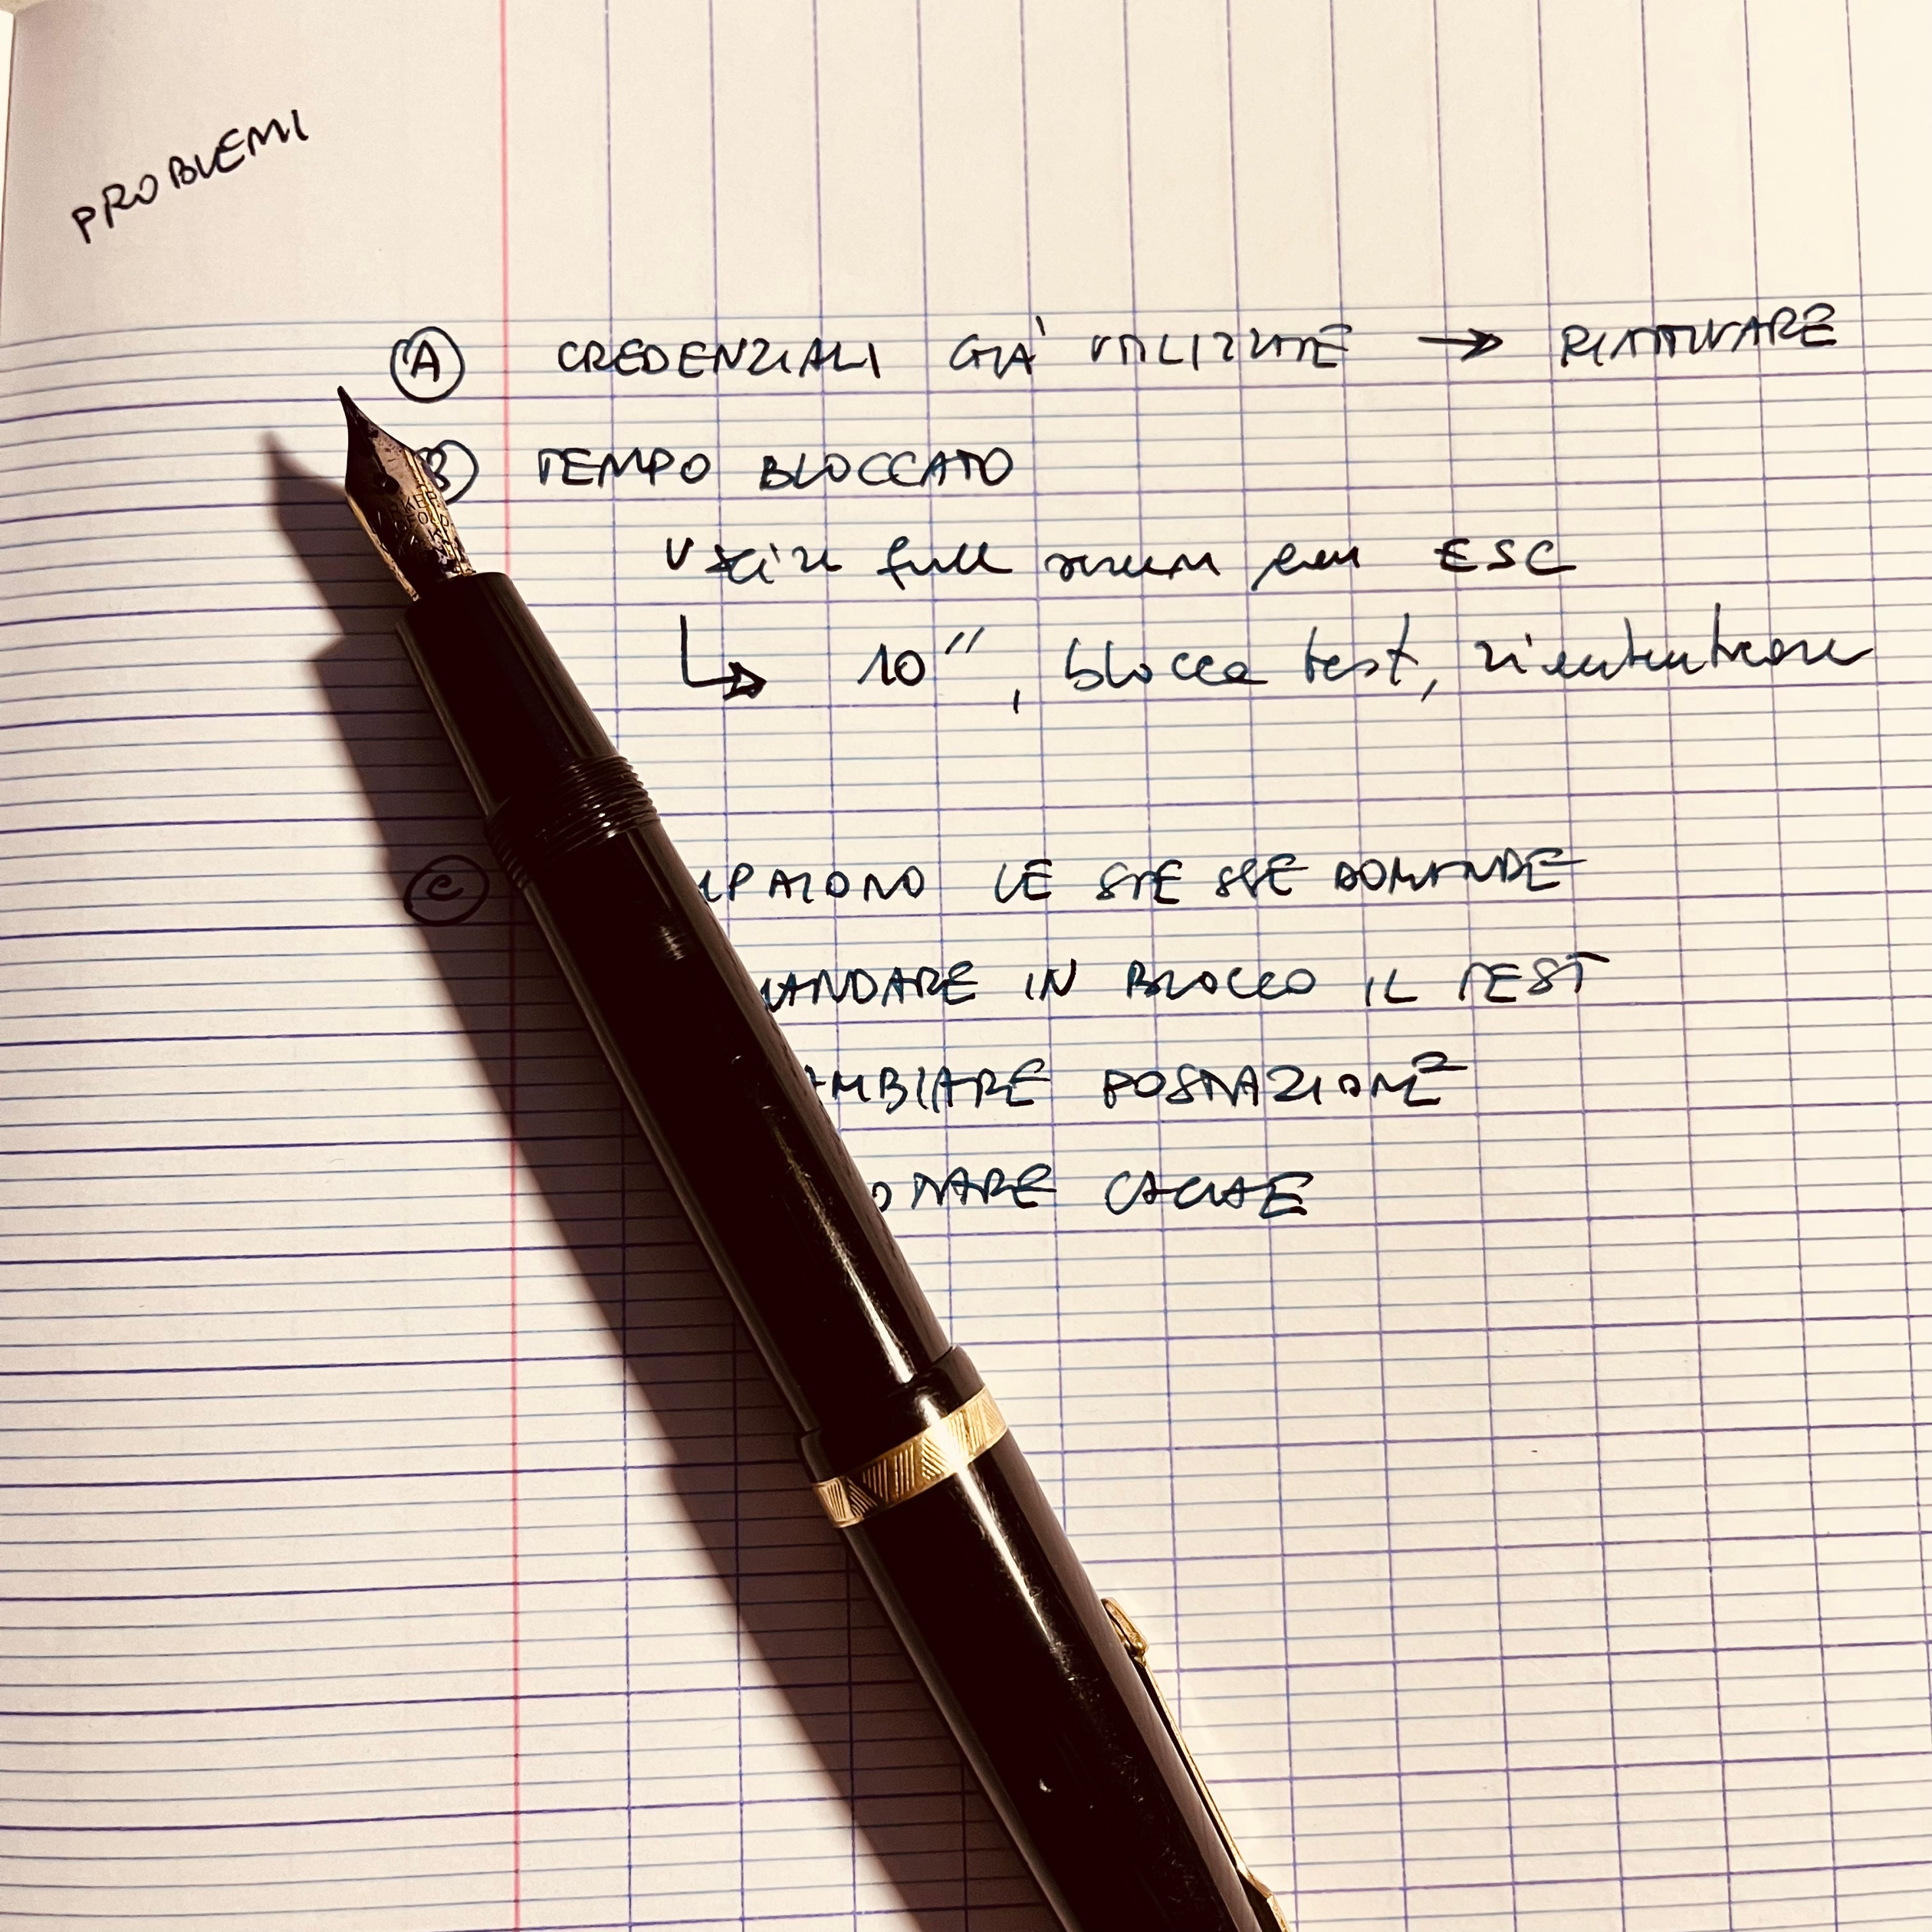 PROBLEMI
A CREDENZIALI GIÀ UTILIZZATE → RIATTIVARE
B TEMPO BLOCCATO
Uscire full screen con ESC
↳ 10'', blocca test,
C PAIONO LE STESSE DOMANDE
MANDARE IN BLOCCO IL TEST
AMBIARE POSTAZIONE
CACHE